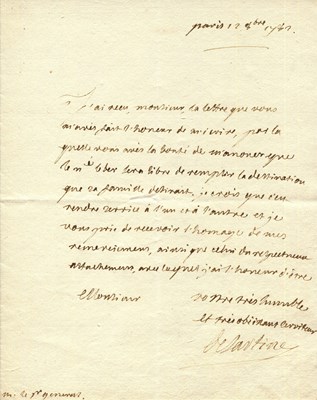 paris 12 8bre 1761.
J'ai receu monsieur la lettre que vous
m'avés fait l'honeur de m'ecrire, par la
quelle vous avés la bonté de m'anoncer que
le mis. sera libre de remplir la destination
que sa famille desirait, je crois que c'est
rendre service à l'un et à l'autre et je
vous prie de recevoir l'homage de mes
remerciemens, ainsi que celui du respectueux
attachement, avec lequel j'ai l'honneur d'être
Monsieur
vostre très humble
et très obeissant serviteur
de Sartine
m. le pr general.